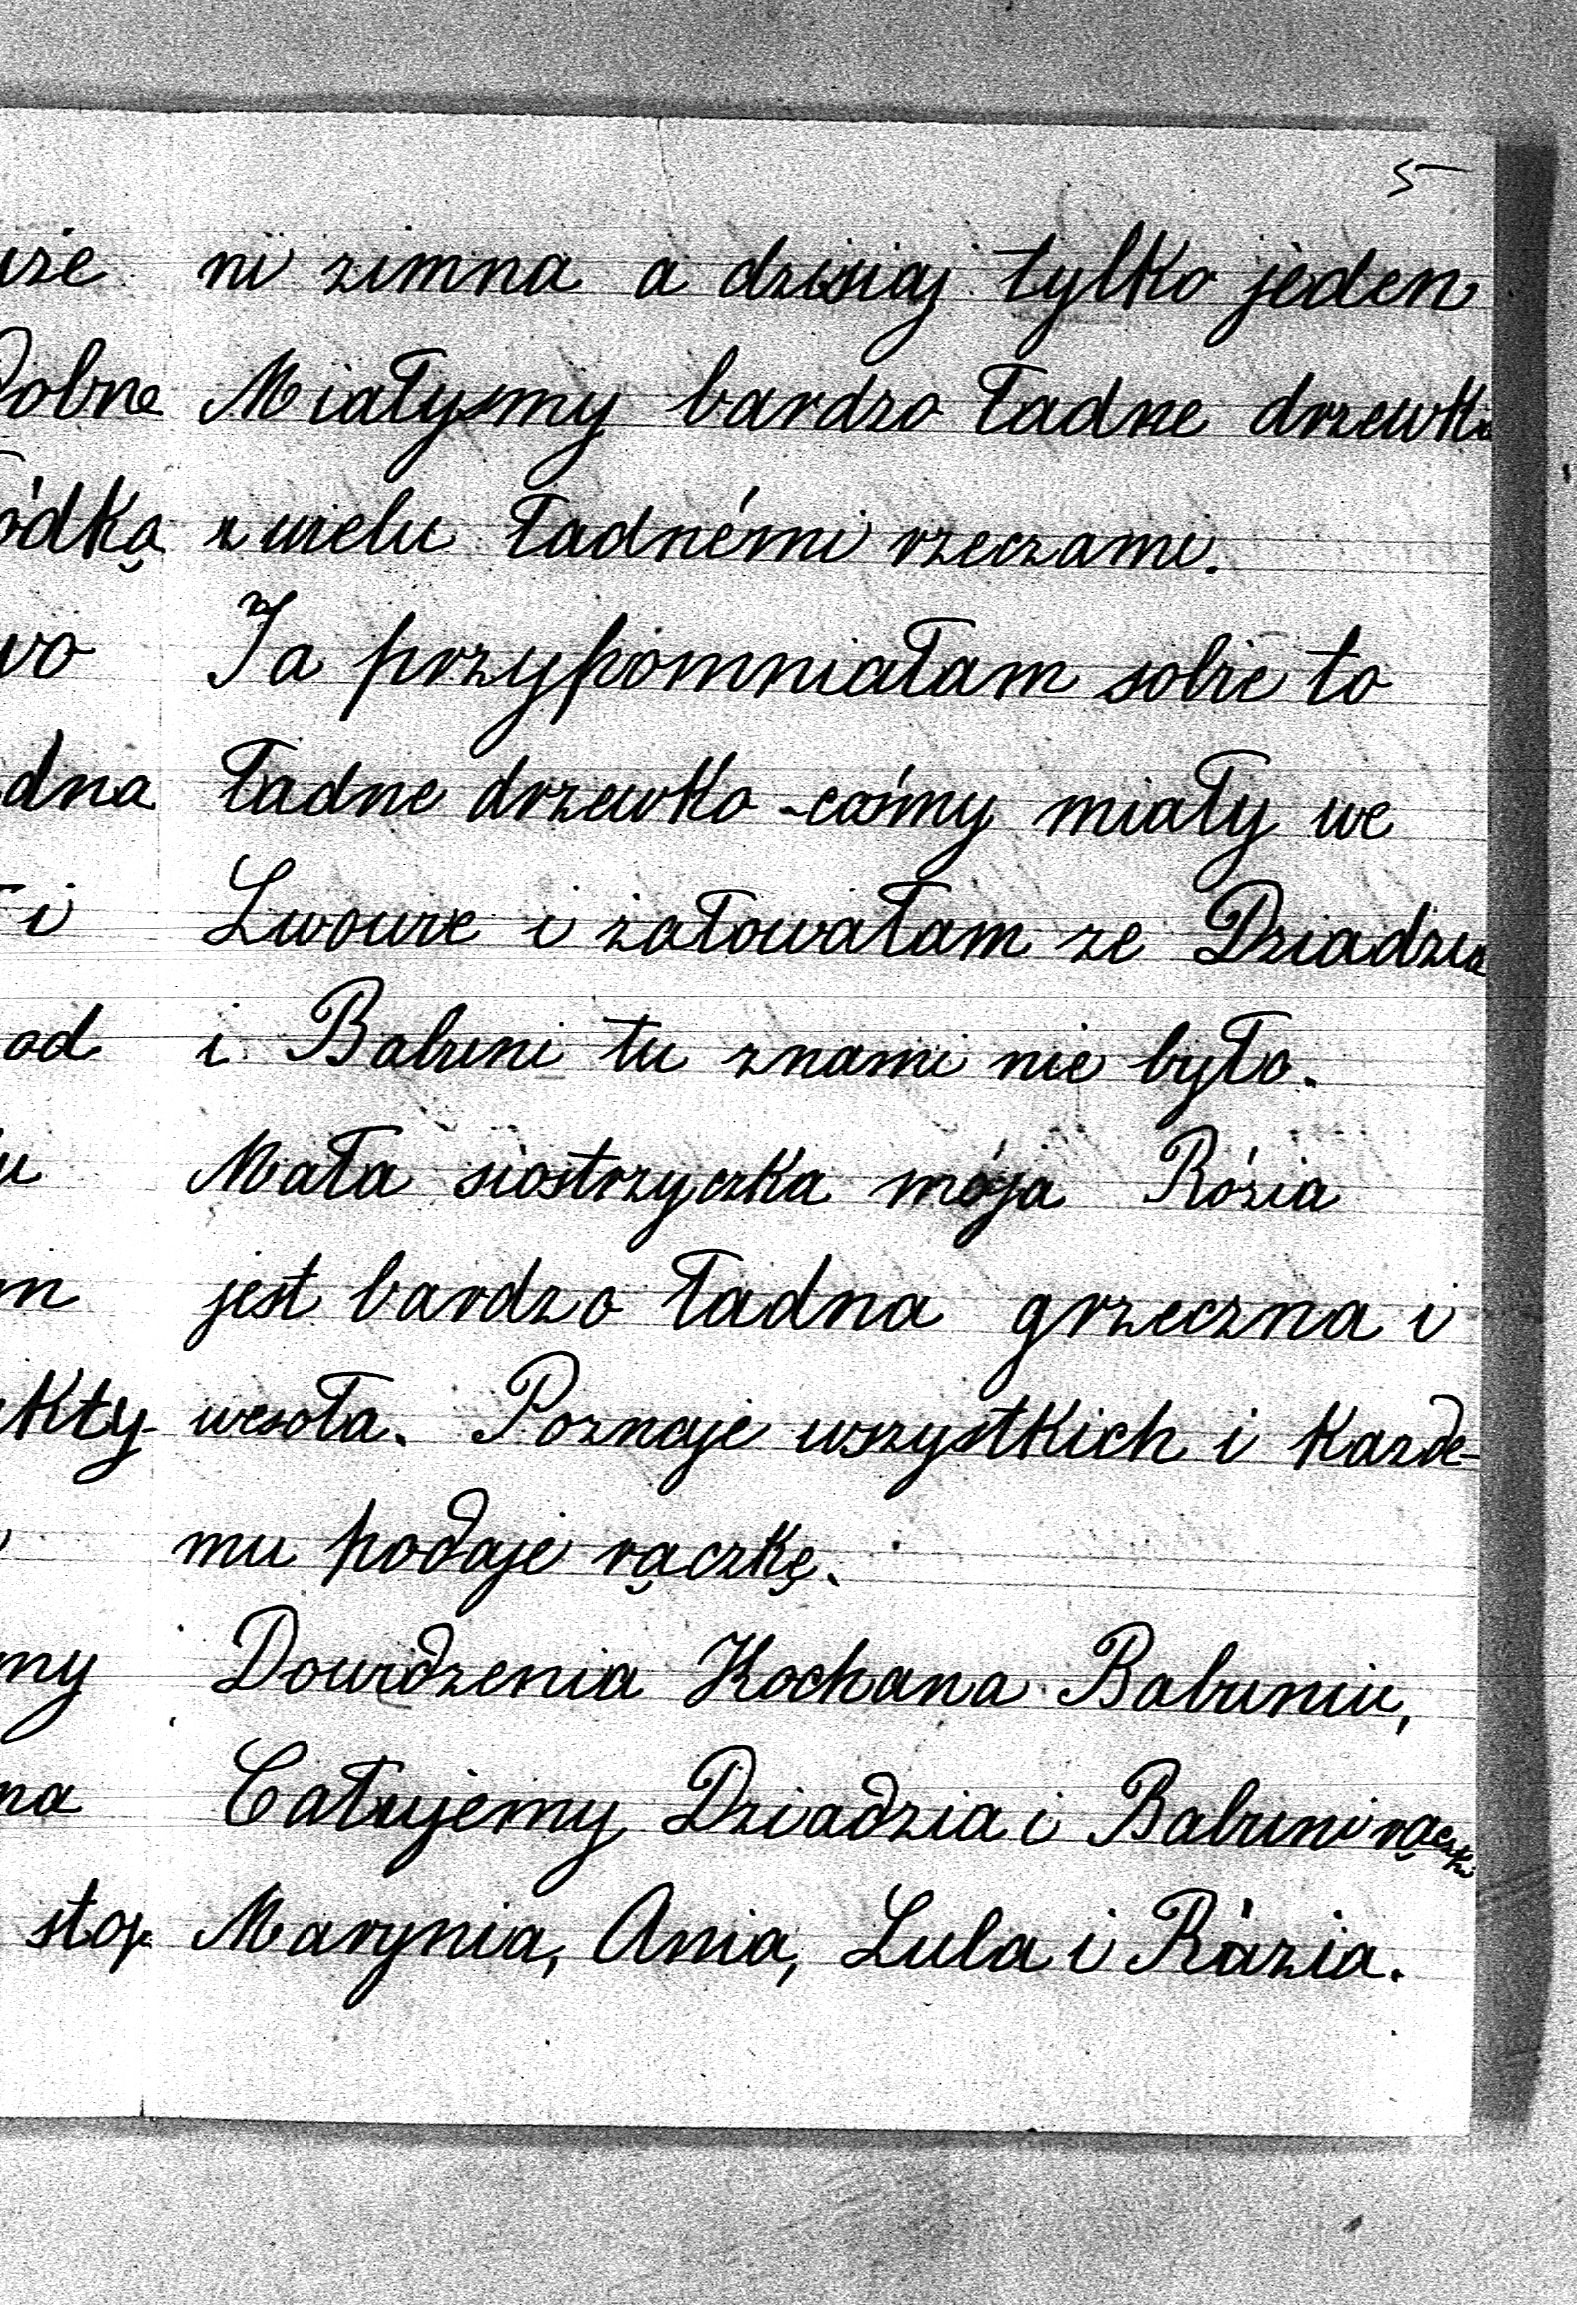 5
ni zimna a dzisiaj tylko jeden
Miałysmy bardzo ładne drzewko
z wielu ładnémi rzeczami.
Ja przypomniałam sobie to
ładne drzewko cośmy miały we
Lwowie i załowałam ze Dziadzia
i Babuni tu znami nie było.
Mała siostrzyczka mója Rózia
jest bardzo ładna grzeczna i
wesoła. Poznaje wszystkich i Kazde-
mu podaje rączkę.
Dowidzenia Kochana Babuniu,
Całujemy Dziadzia i Babuni rączki
Marynia, Ania, Lula i Rózia.